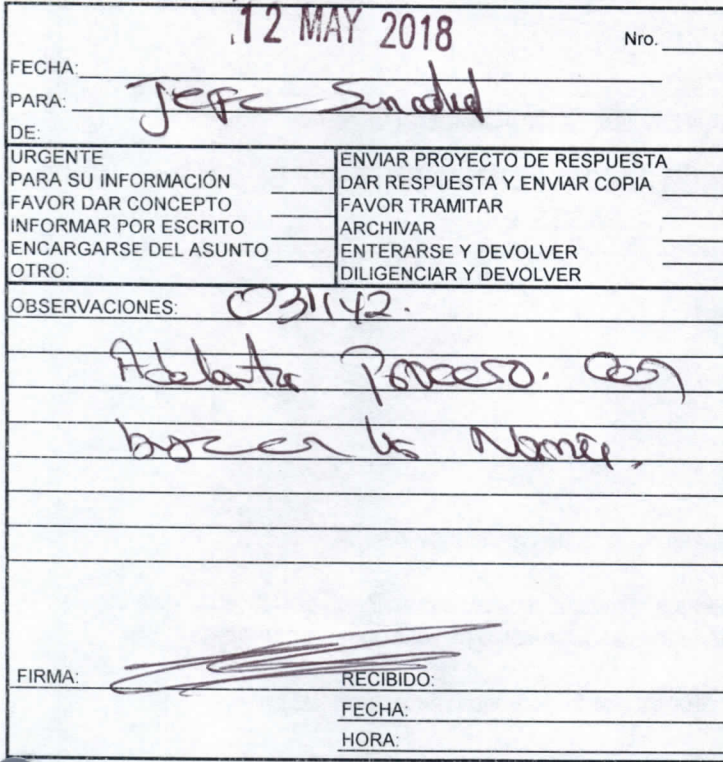 12 MAY 2018
Nro.
FECHA:
PARA: Jefe
DE:
URGENTE
PARA SU INFORMACIÓN
FAVOR DAR CONCEPTO
INFORMAR POR ESCRITO
ENCARGARSE DEL ASUNTO
OTRO:
ENVIAR PROYECTO DE RESPUESTA
DAR RESPUESTA Y ENVIAR COPIA
FAVOR TRAMITAR
ARCHIVAR
ENTERARSE Y DEVOLVER
DILIGENCIAR Y DEVOLVER
OBSERVACIONES: 031142.
Adelantar Proceso. Con
base en la
FIRMA:
RECIBIDO:
FECHA:
HORA: